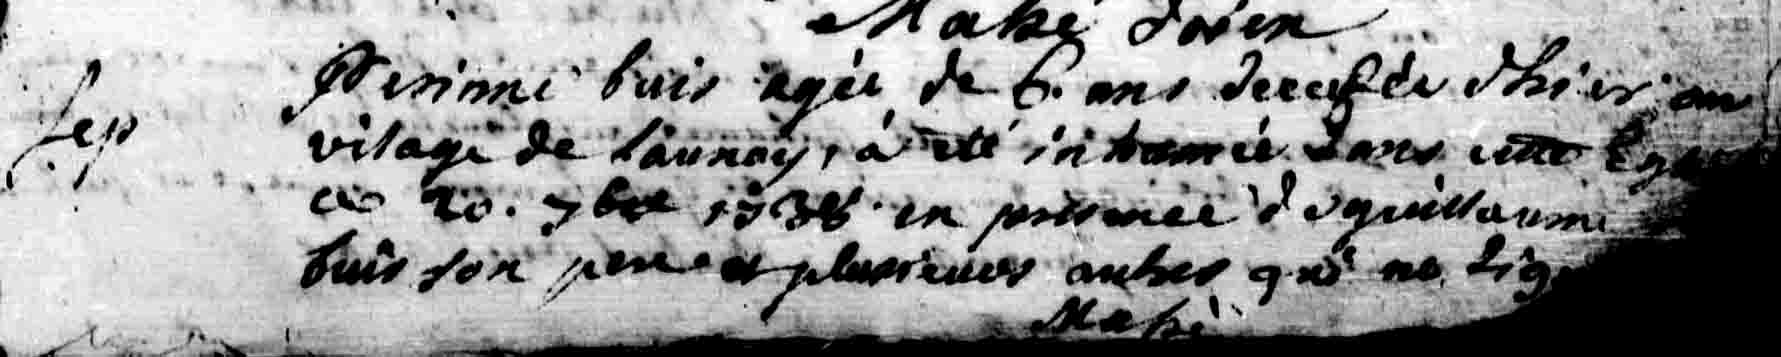 Mahé doïen
Sep
Perinne buis agée de 6. ans decedée d'hier au
vilage de launay, à été inhumée dans cette Egl
ce 20. 7bre 1738 en presence de guillaume
buis son pere et plusieurs autres qui ne sig
Mahé